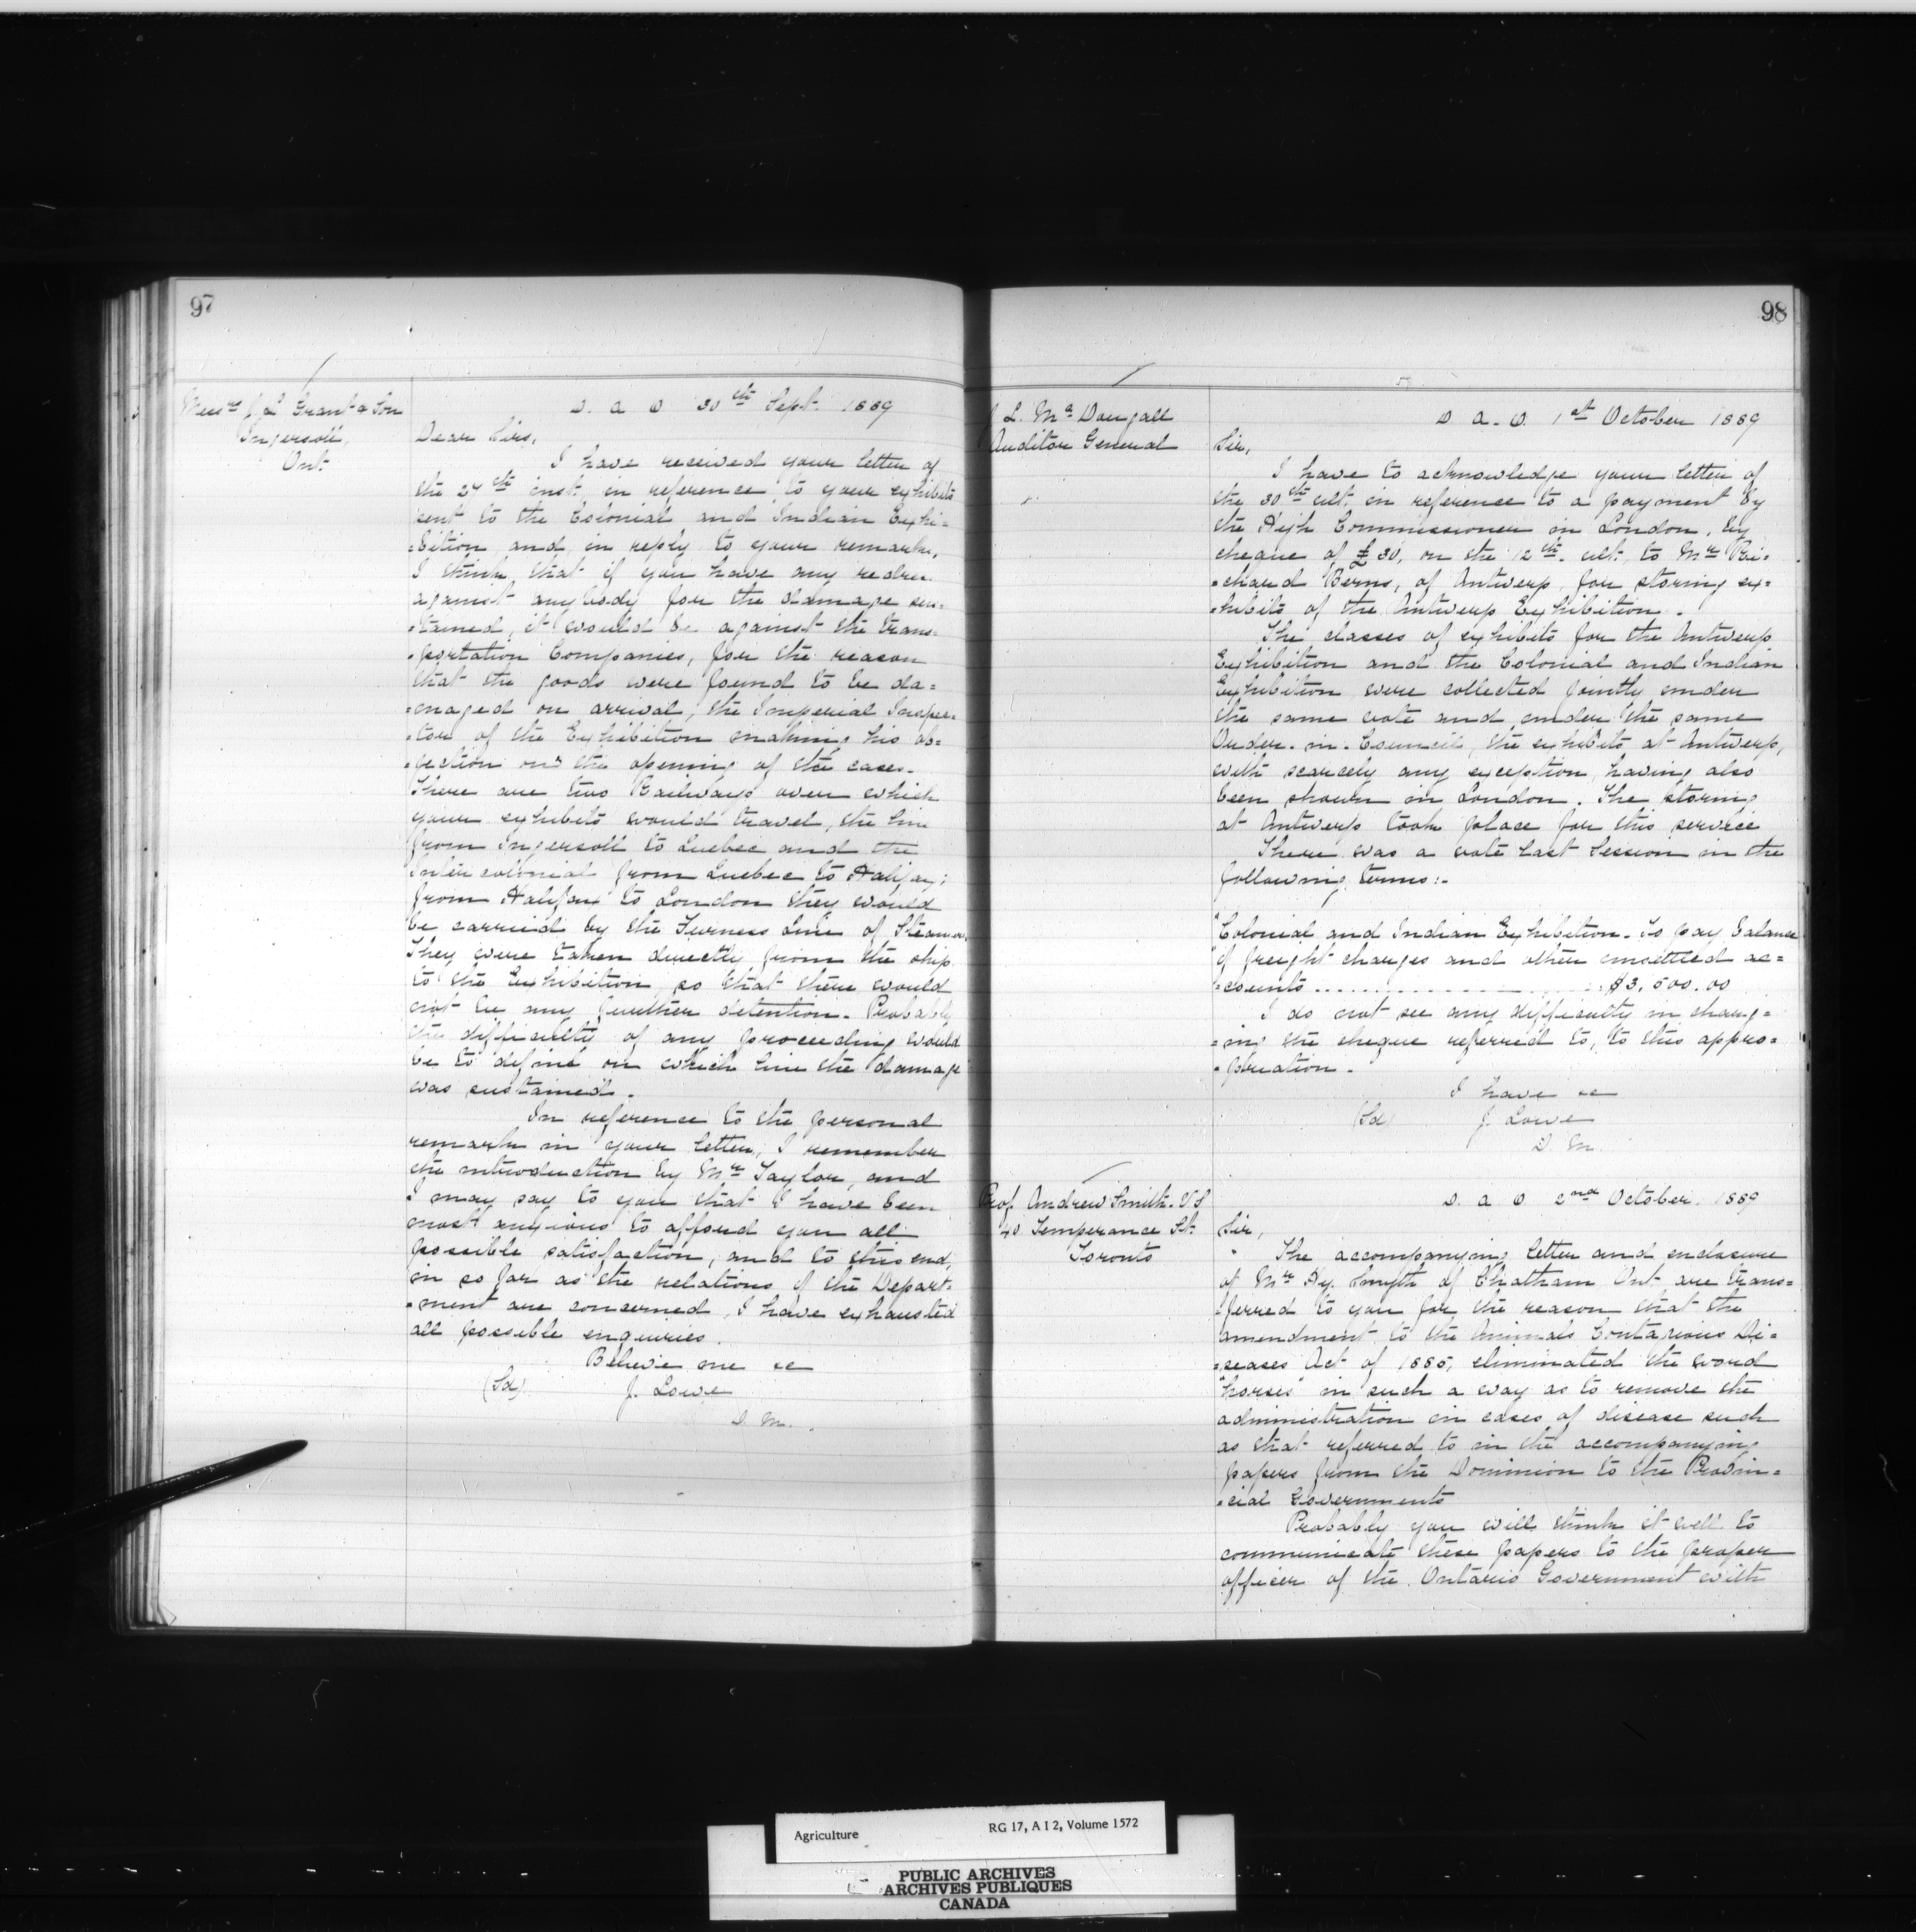 97
Messrs J. L. Grant & Son
Ingersoll,
Ont.
D. A. O. 30th Sept. 1889
Dear Sirs,
I have received your letter of
the 27th inst. in reference to your exhibits
sent to the Colonial and Indian Exhi=
=bition and, in reply to your remarks,
I think that if you have any redress
against anybody for the damage sus=
=tained, it would be against the trans=
=portation Companies, for the reason
that the goods were found to be da=
=maged on arrival, the Imperial Inspec=
=tor of the Exhibition making his ob=
=jection on the opening of the cases.
There are two Railways over which
your exhibits would travel, the line
from Ingersoll to Quebec and the
Intercolonial from Quebec to Halifax;
from Halifax to London they would
be carried by the Furness Line of Steamers.
They were taken directly from the ship
to the Exhibition, so that there would
not be any further detention. Probably
the difficulty of any proceeding would
be to define on which line the damage
was sustained.
In reference to the personal
remarks in your letter, I remember
the introduction by Mr Taylor, and
I may say to you that I have been
most anxious to afford you all
possible satisfaction, and to this end,
in so far as the relations of the Depart=
=ment are concerned, I have exhausted
all possible enquiries.
Believe me &c
(Sd) J. Lowe
D. M.
98
J. L. McDougall
Auditor General
D. A. O. 1st October 1889
Sir,
I have to acknowledge your letter of
the 30th ult. in reference to a payment by
the High Commissioner in London, by
cheque of £30, on the 12th ult. to Mr Ri=
=chard Berns, of Antwerp, for storing ex=
=hibits of the Antwerp Exhibition.
The classes of exhibits for the Antwerp
Exhibition and the Colonial and Indian
Exhibition were collected jointly under
the same vote and under the same
Order-in-Council, the exhibits at Antwerp,
with scarcely any exception, having also
been shown in London. The storing
at Antwerp took place for this service
There was a vote last Session in the
following terms:-
"Colonial and Indian Exhibition - To pay balance
"of freight charges and other unsettled ac=
"=counts .......... $3,500.00
I do not see any difficulty in charg=
=ing the cheque referred to, to this appro=
=priation.
I have &c
(Sd) J. Lowe
D. M.
Prof. Andrew Smith. V.S
40 Temperance St.
Toronto
D. A. O 2nd October. 1889
Sir,
The accompanying letter and enclosure
of Mr Hy. Smyth of Chatham Ont. are trans=
=ferred to you for the reason that the
amendment to the Animals Contagious Di=
=seases Act of 1885, eliminated the word
"horses" in such a way as to remove the
administration in cases of disease such
as that referred to in the accompanying
papers from the Dominion to the Provin=
=cial Governments
Probably you will think it well to
communicate these papers to the proper
officer of the Ontario Government with
Agriculture RG 17, A I 2, Volume 1572
PUBLIC ARCHIVES
ARCHIVES PUBLIQUES
CANADA